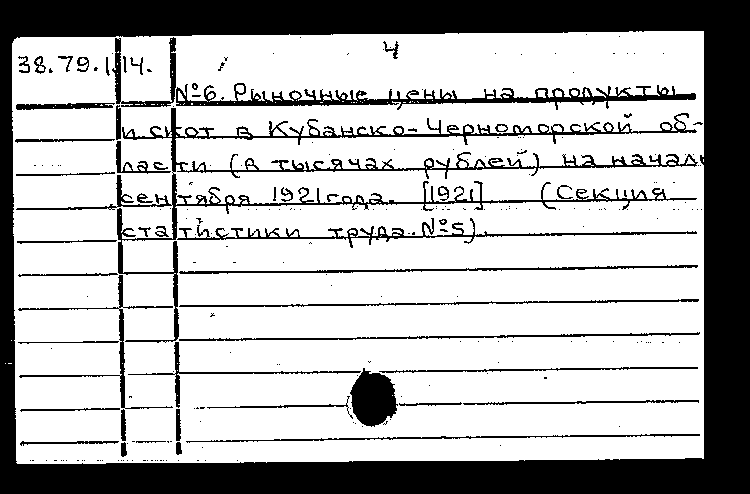 4
38.79.1.14.
№6. Рыночные цены на продукты
и скот в Кубанско-Черноморской об-
ласти (в тысячах рублей) на начало
сентября 1921 года. [1921] (Секция
статистики труда. №5).